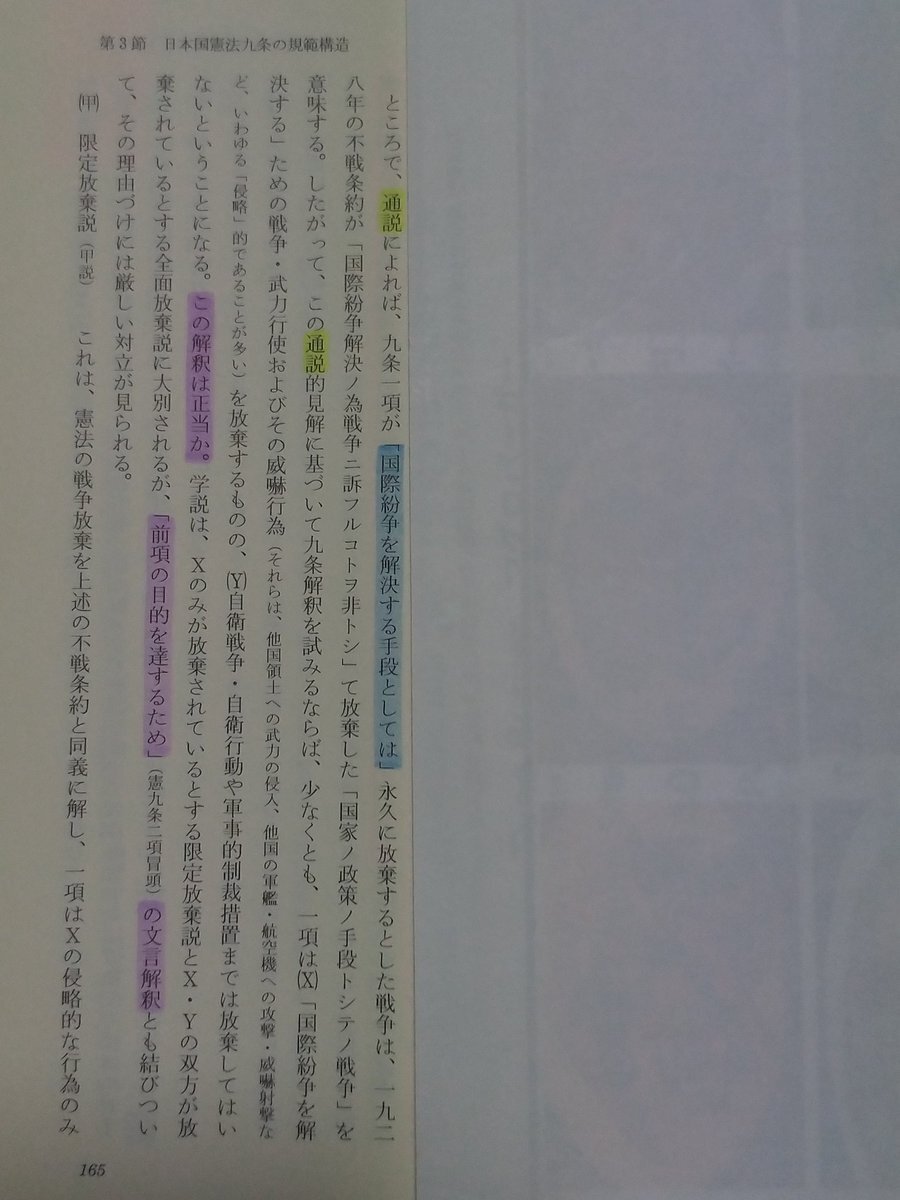 第3節　日本国憲法九条の規範構造
ところで、通説によれば、九条一項が「国際紛争を解決する手段としては」永久に放棄するとした戦争は、一九二
八年の不戦条約が「国際紛争解決ノ為戦争ニ訴フルコトヲ非トシ」て放棄した「国家ノ政策ノ手段トシテノ戦争」を
意味する。したがって、この通説的見解に基づいて九条解釈を試みるならば、少なくとも、一項は(X)「国際紛争を解
決する」ための戦争・武力行使およびその威嚇行為（それらは、他国領土への武力の侵入、他国の軍艦・航空機への攻撃・威嚇射撃な
ど、いわゆる「侵略」的であることが多い）を放棄するものの、(Y)自衛戦争・自衛行動や軍事的制裁措置までは放棄してはい
ないということになる。この解釈は正当か。学説は、Xのみが放棄されているとする限定放棄説とX・Yの双方が放
棄されているとする全面放棄説に大別されるが、「前項の目的を達するため」（憲九条二項冒頭）の文言解釈とも結びつい
て、その理由づけには厳しい対立が見られる。
(甲)　限定放棄説（甲説）　これは、憲法の戦争放棄を上述の不戦条約と同義に解し、一項はXの侵略的な行為のみ
165